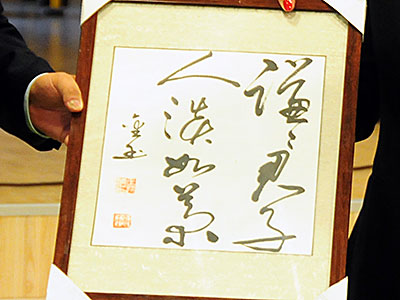 謙々君子
人淡如菊